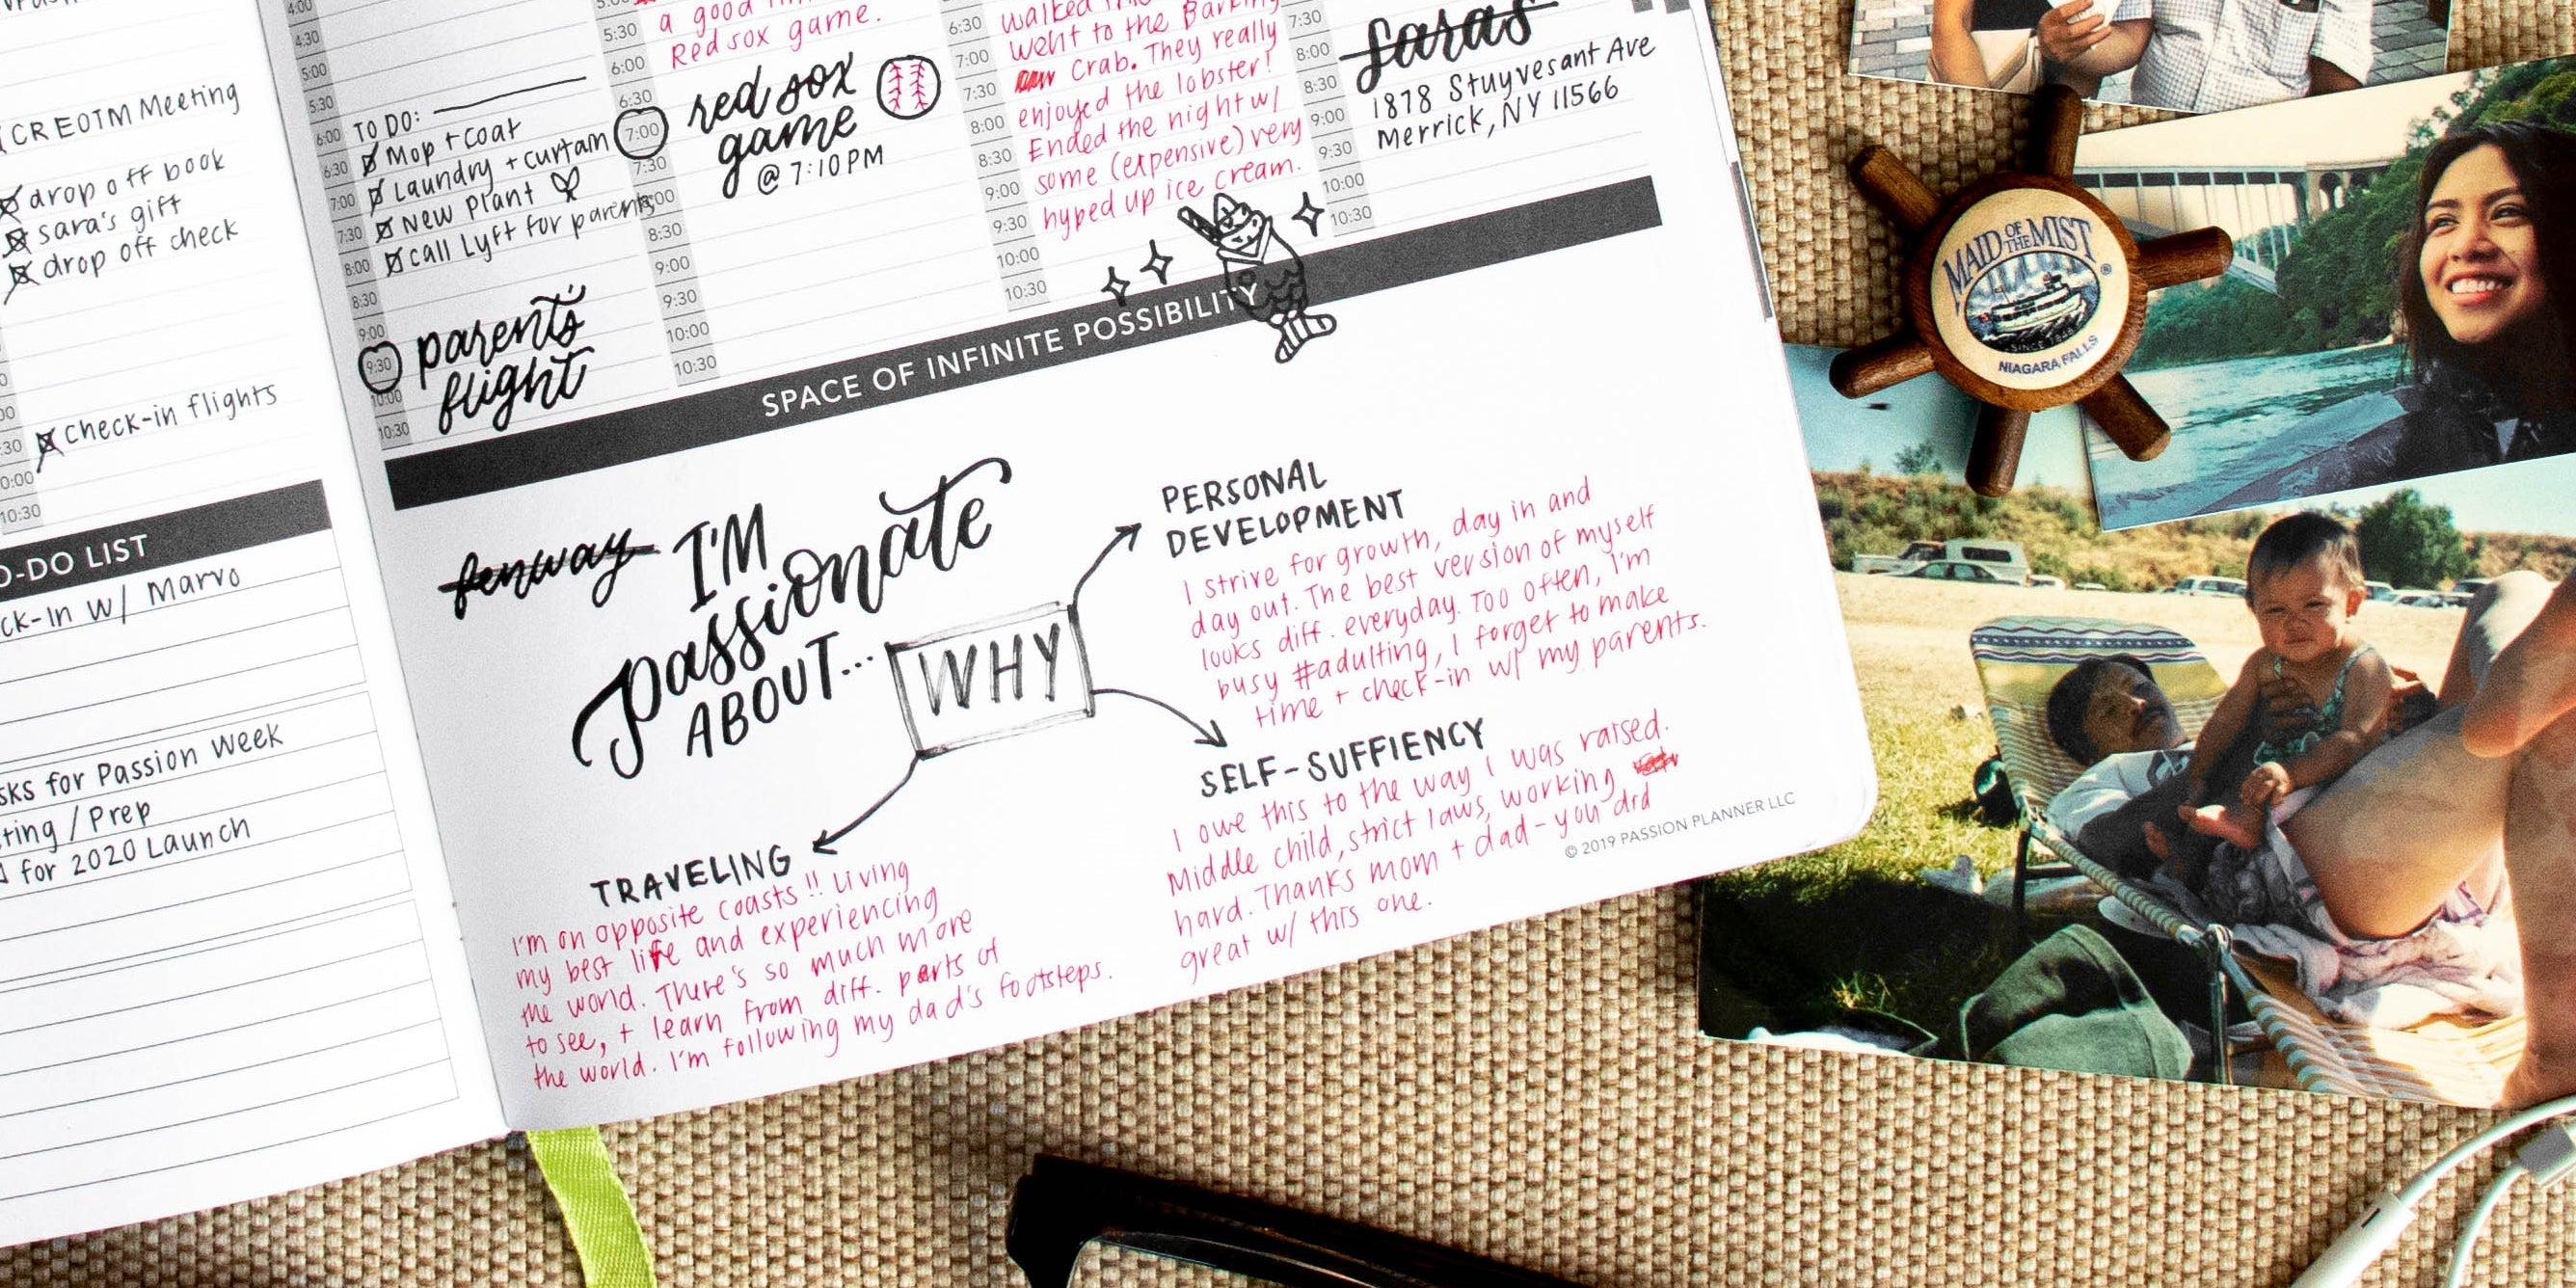 4:00
4:30
5:00
5:30
6:00
6:30
7:00
7:30
8:00
8:30
9:00
9:30
10:00
10:30
CREOTM Meeting
drop off book
sara's gift
drop off check
check-in flights
30
0:00
10:30
O-DO LIST
ck-In w/ Marvo
sks for Passion Week
ting / Prep
for 2020 Launch
TO DO:
Mop + coat
Laundry + curtain
New Plant
call Lyft for parents
parents'
flight
5:30
6:00
6:30
7:00
7:30
8:00
8:30
9:00
9:30
10:00
10:30
a good
Red sox game.
red sox
game
@ 7:10 PM
6:30
7:00
7:30
8:00
8:30
9:00
9:30
10:00
10:30
walked
went to the Barking
Crab. They really
enjoyed the lobster!
Ended the night w/
some (expensive) very
hyped up ice cream.
7:30
8:00
8:30
9:00
9:30
10:00
10:30
saras
1878 Stuyvesant Ave
Merrick, NY 11566
SPACE OF INFINITE POSSIBILITY
fenway
I'M
passionate
ABOUT...
WHY
PERSONAL
DEVELOPMENT
I strive for growth, day in and
day out. The best version of myself
looks diff. everyday. Too often, I'm
busy #adulting, I forget to make
time + check-in w/ my parents.
SELF-SUFFIENCY
I owe this to the way I was raised.
Middle child, strict laws, working
hard. Thanks mom + dad - you did
great w/ this one.
TRAVELING
I'm on opposite coasts!! Living
my best life and experiencing
the world. There's so much more
to see, + learn from diff. parts of
the world. I'm following my dad's footsteps.
© 2019 PASSION PLANNER LLC
MAID OF THE MIST
®
SINCE
NIAGARA FALLS